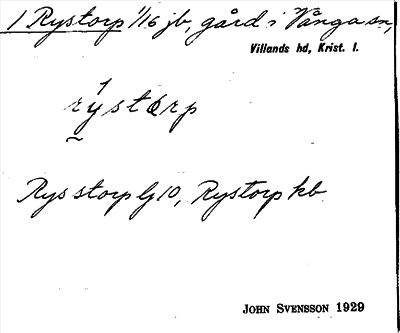 1 Rystorp 1/16 jb, gård i Vånga sn,
Villands hd, Krist. l.
rystorp
Rys storp lj 10, Rystorp kb
JOHN SVENSSON 1929